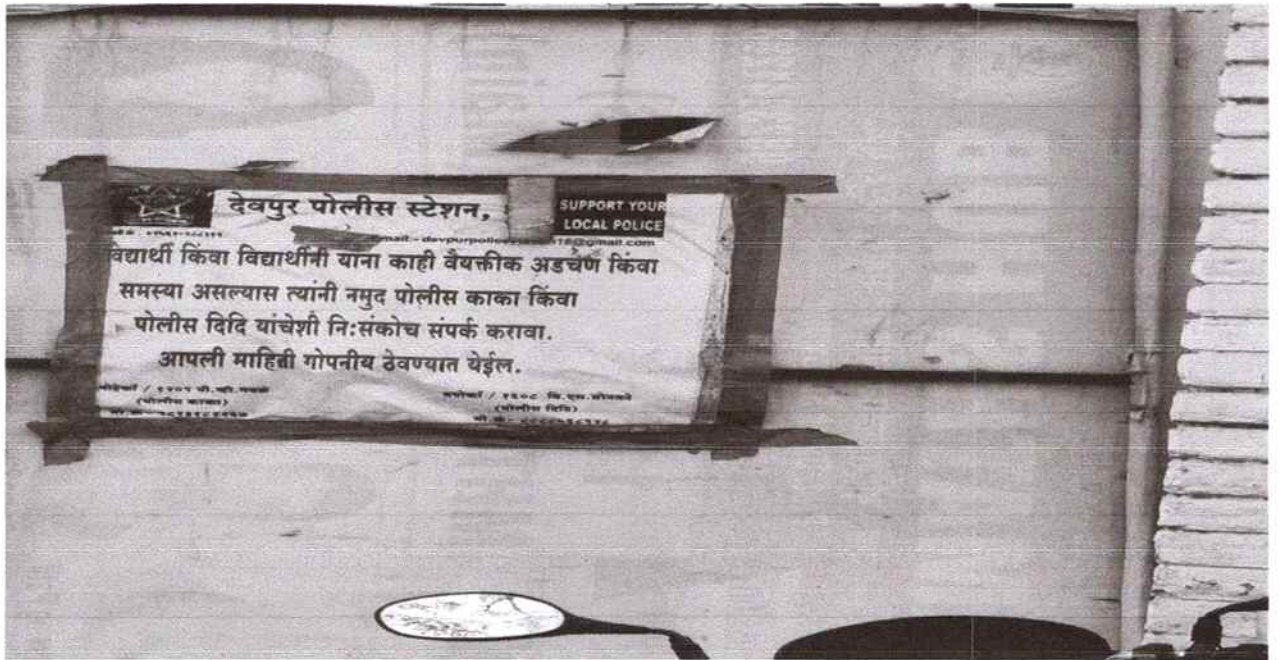 देवपुर पोलीस स्टेशन,
SUPPORT YOUR
LOCAL POLICE
विद्यार्थी किंवा विद्यार्थीनी यांना काही वैयक्तीक अडचण किंवा
समस्या असल्यास त्यांनी नमुद पोलीस काका किंवा
पोलीस दिदि यांचेशी नि:संकोच संपर्क करावा.
आपली माहिती गोपनीय ठेवण्यात येईल.
(पोलीस काका)
(पोलीस दिदि)